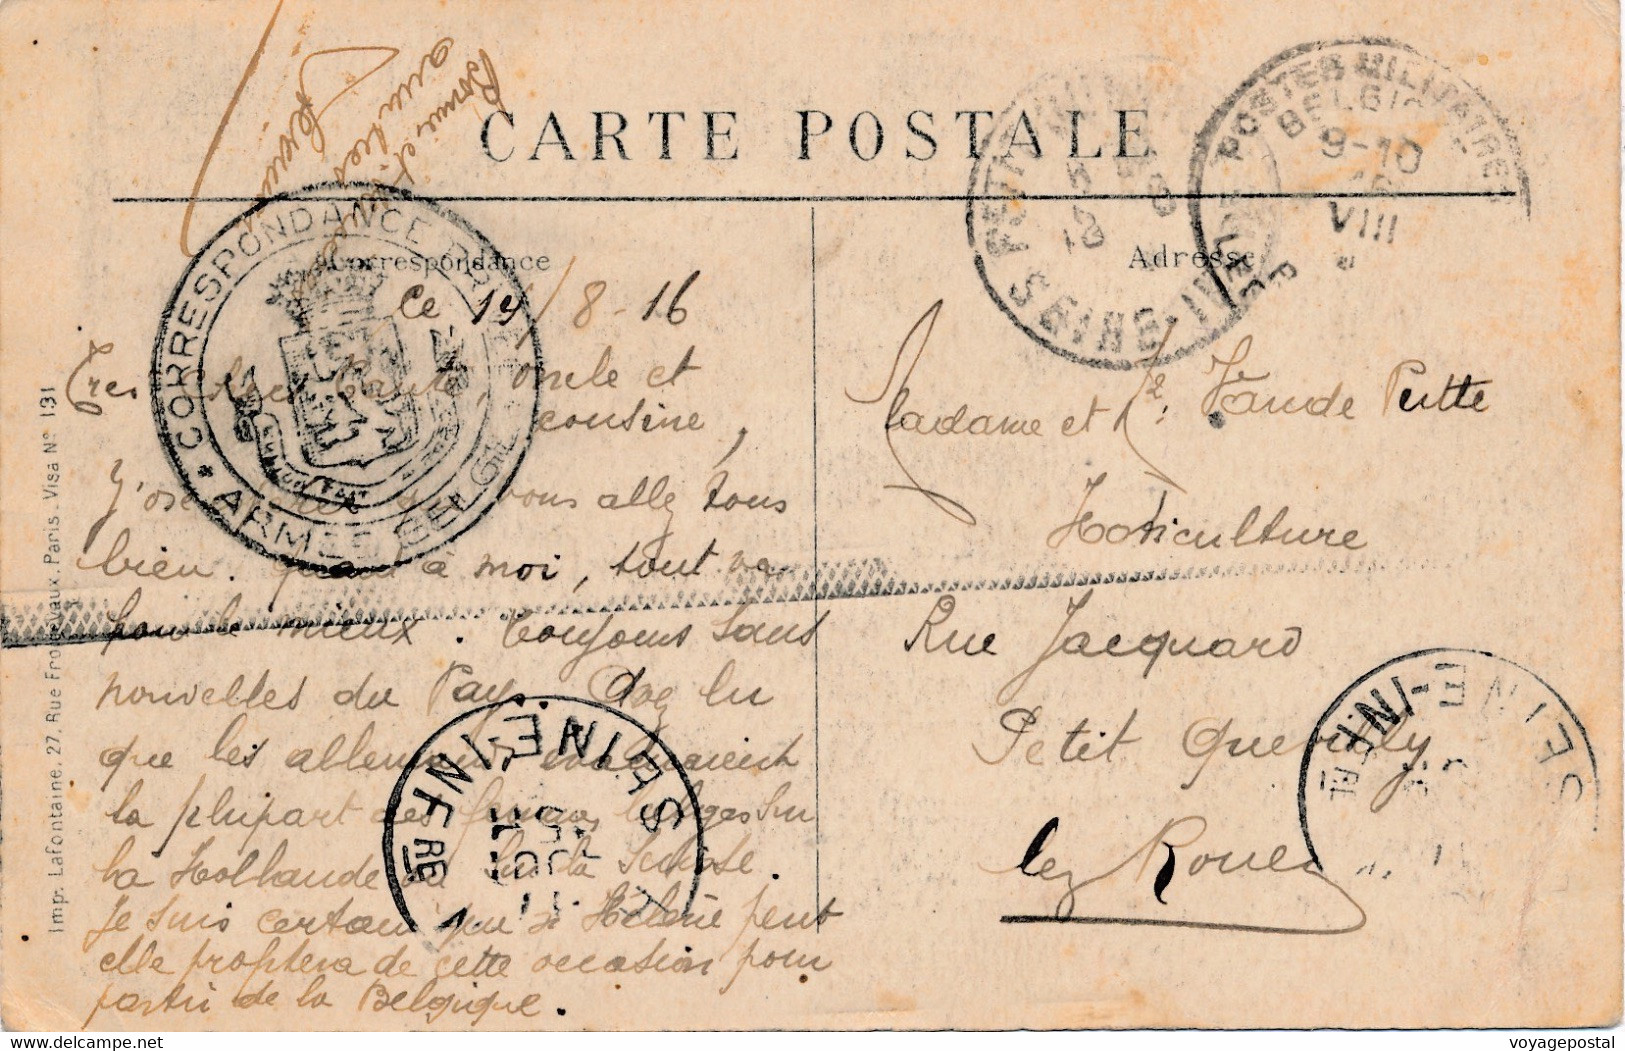 Bonne et
CARTE POSTALE
Correspondance
Adresse
CORRESPONDANCE PRIVEE
* ARMEE BELGE
POSTES MILITAIRES
BELGI
9-10
16
VIII
SEINE-INFRE
SEINE-INF
Ce 14/8-16
Tres chers tante, oncle et
cousine,
J'ose croire que vous allez tous
bien. Quant à moi, tout va
pour le mieux. Toujours sans
nouvelles du Pays. Avez lu
que les allemands évacuaient
la plupart des femmes belges sur
la Hollande ou sur la Suisse.
Je suis certain que si Hélène peut
elle profitera de cette occasion pour
partir de la Belgique.
Madame et Mr: Vande Putte
Horticulture
Rue Jacquard
Petit Quevilly
lez Rouen
Imp. Lafontaine, 27, Rue Froidevaux, Paris - Visa N° 131
voyagepostal